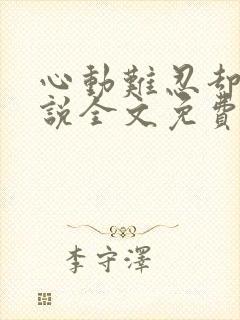 心動難忍却
說全文免費
李守澤